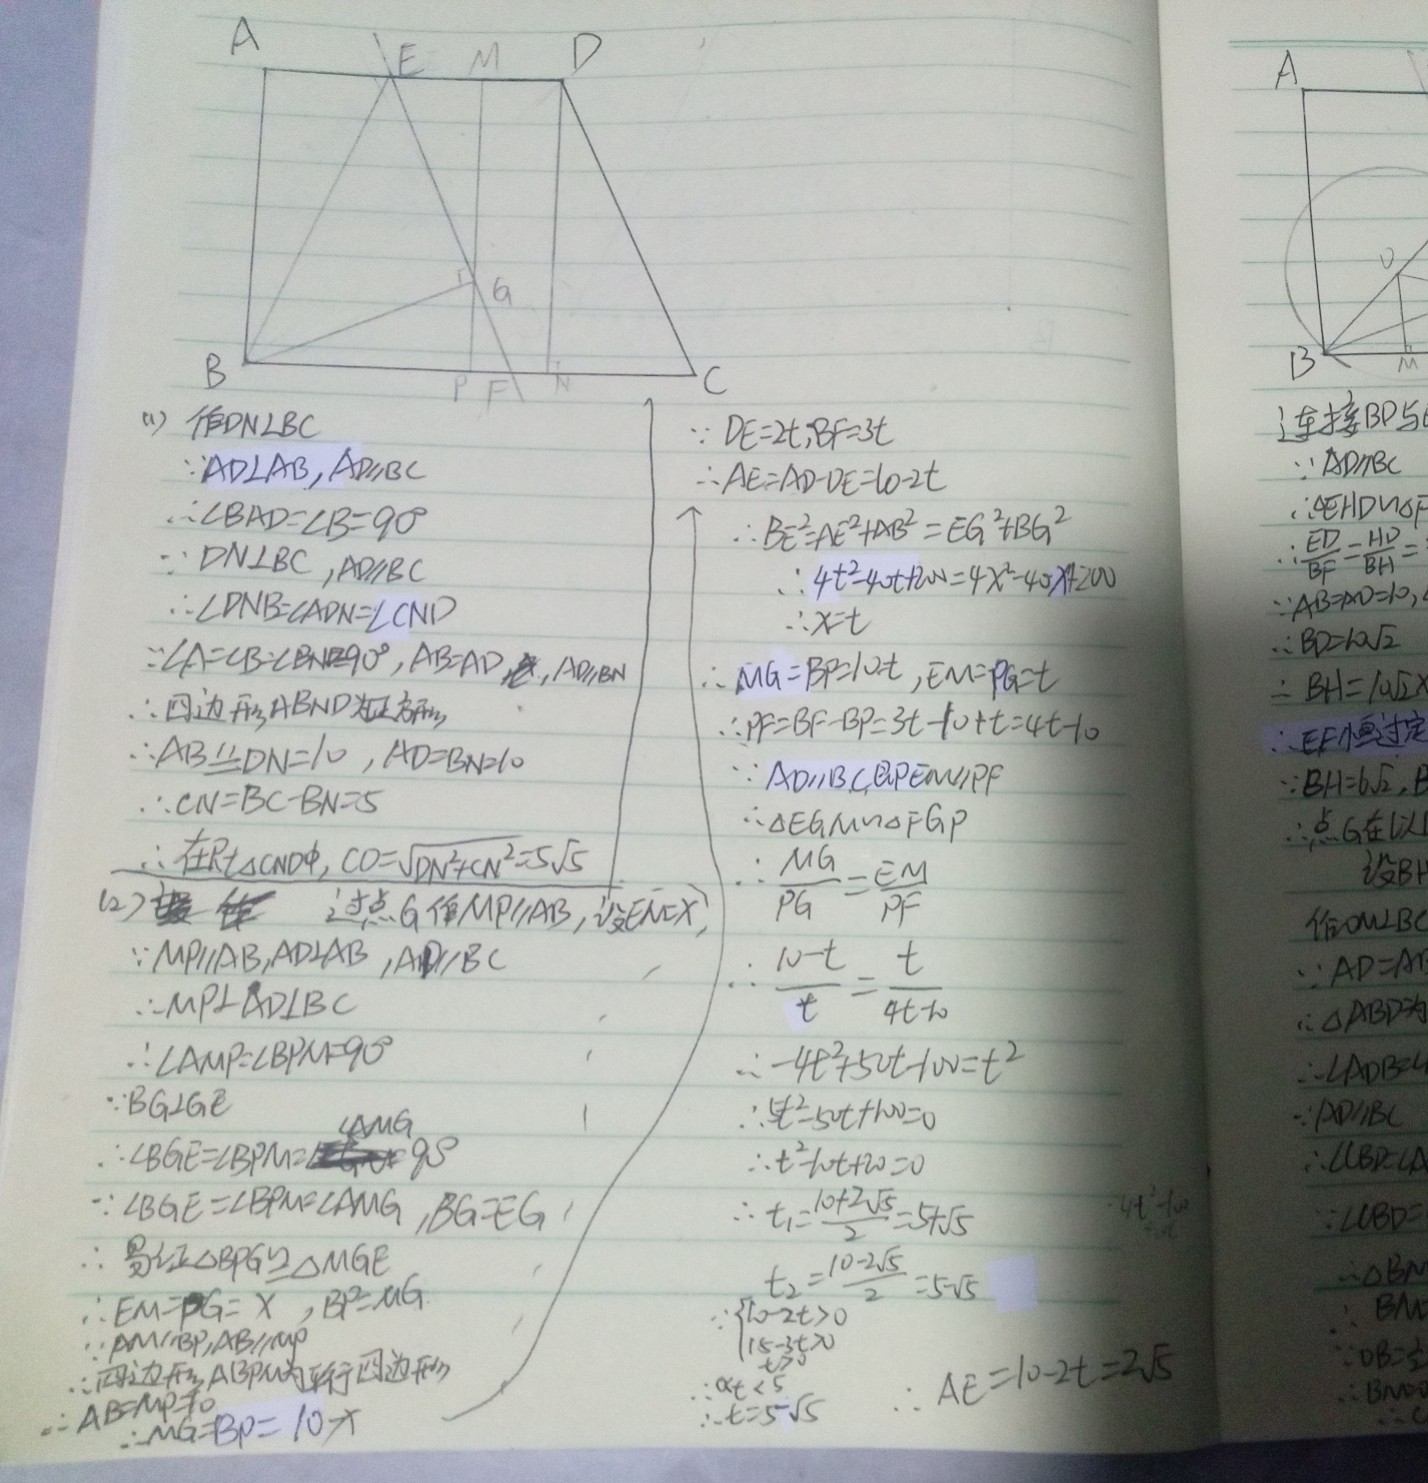 A
E
M
D
G
B
P
F
N
C
(1) 作DN⊥BC
∵AD⊥AB,AD∥BC
∴∠BAD=∠B=90°
∵DN⊥BC,AD∥BC
∴∠DNB=∠ADN=∠CND
∵∠A=∠B=∠BND=90°,AB=AD,AD∥BN
∴四边形ABND为正方形
∴AB=DN=10,AD=BN=10
∴CN=BC-BN=5
∴在Rt△CND中,CD=√(DN²+CN²)=5√5
(2) 过点G作MP∥AB,设EM=X
∵MP∥AB,AD⊥AB,AD∥BC
∴MP⊥AD⊥BC
∴∠AMP=∠BPM=90°
∵BG⊥GE
∠AMG
∴∠BGE=∠BPM= =90°
∵∠BGE=∠BPM=∠AMG,BG=EG
∴易证△BPG≌△MGE
∴EM=PG=X,BP=MG
∵AM∥BP,AB∥MP
∴四边形ABPM为平行四边形
∴AB=MP=10
∴MG=BP=10-x
∵DE=2t,BF=3t
∴AE=AD-DE=10-2t
∴BE²=AE²+AB²=EG²+BG²
∴4t²-40t+200=4x²-40x+200
∴x=t
∴MG=BP=10-t,EM=PG=t
∴PF=BF-BP=3t-10+t=4t-10
∵AD∥BC即EM∥PF
∴△EGM∽△FGP
∴MG/PG=EM/PF
∴(10-t)/t=t/(4t-10)
∴-4t²+50t-100=t²
∴5t²-50t+100=0
∴t²-10t+20=0
∴t₁=(10+2√5)/2=5+√5
t₂=(10-2√5)/2=5-√5
∵{10-2t>0
15-3t>0
t>0
∴0<t<5
∴t=5-√5
∴AE=10-2t=2√5
A
B
M
连接BD与
∵AD∥BC
∴△EHD∽△F
∴ED/BF=HD/BH=
∵AB=AD=10,
∴BD=10√2
∴BH=10√2×
∴EF恒过定
∵BH=6√2,B
∴点G在以
设BH
作OM⊥BC
∵AD=AB
∴△ABD为
∴∠ADB=∠
∵AD∥BC
∴∠CBD=∠A
∵∠CBD=
∴△BM
∴BM
∵OB=
∴BM=